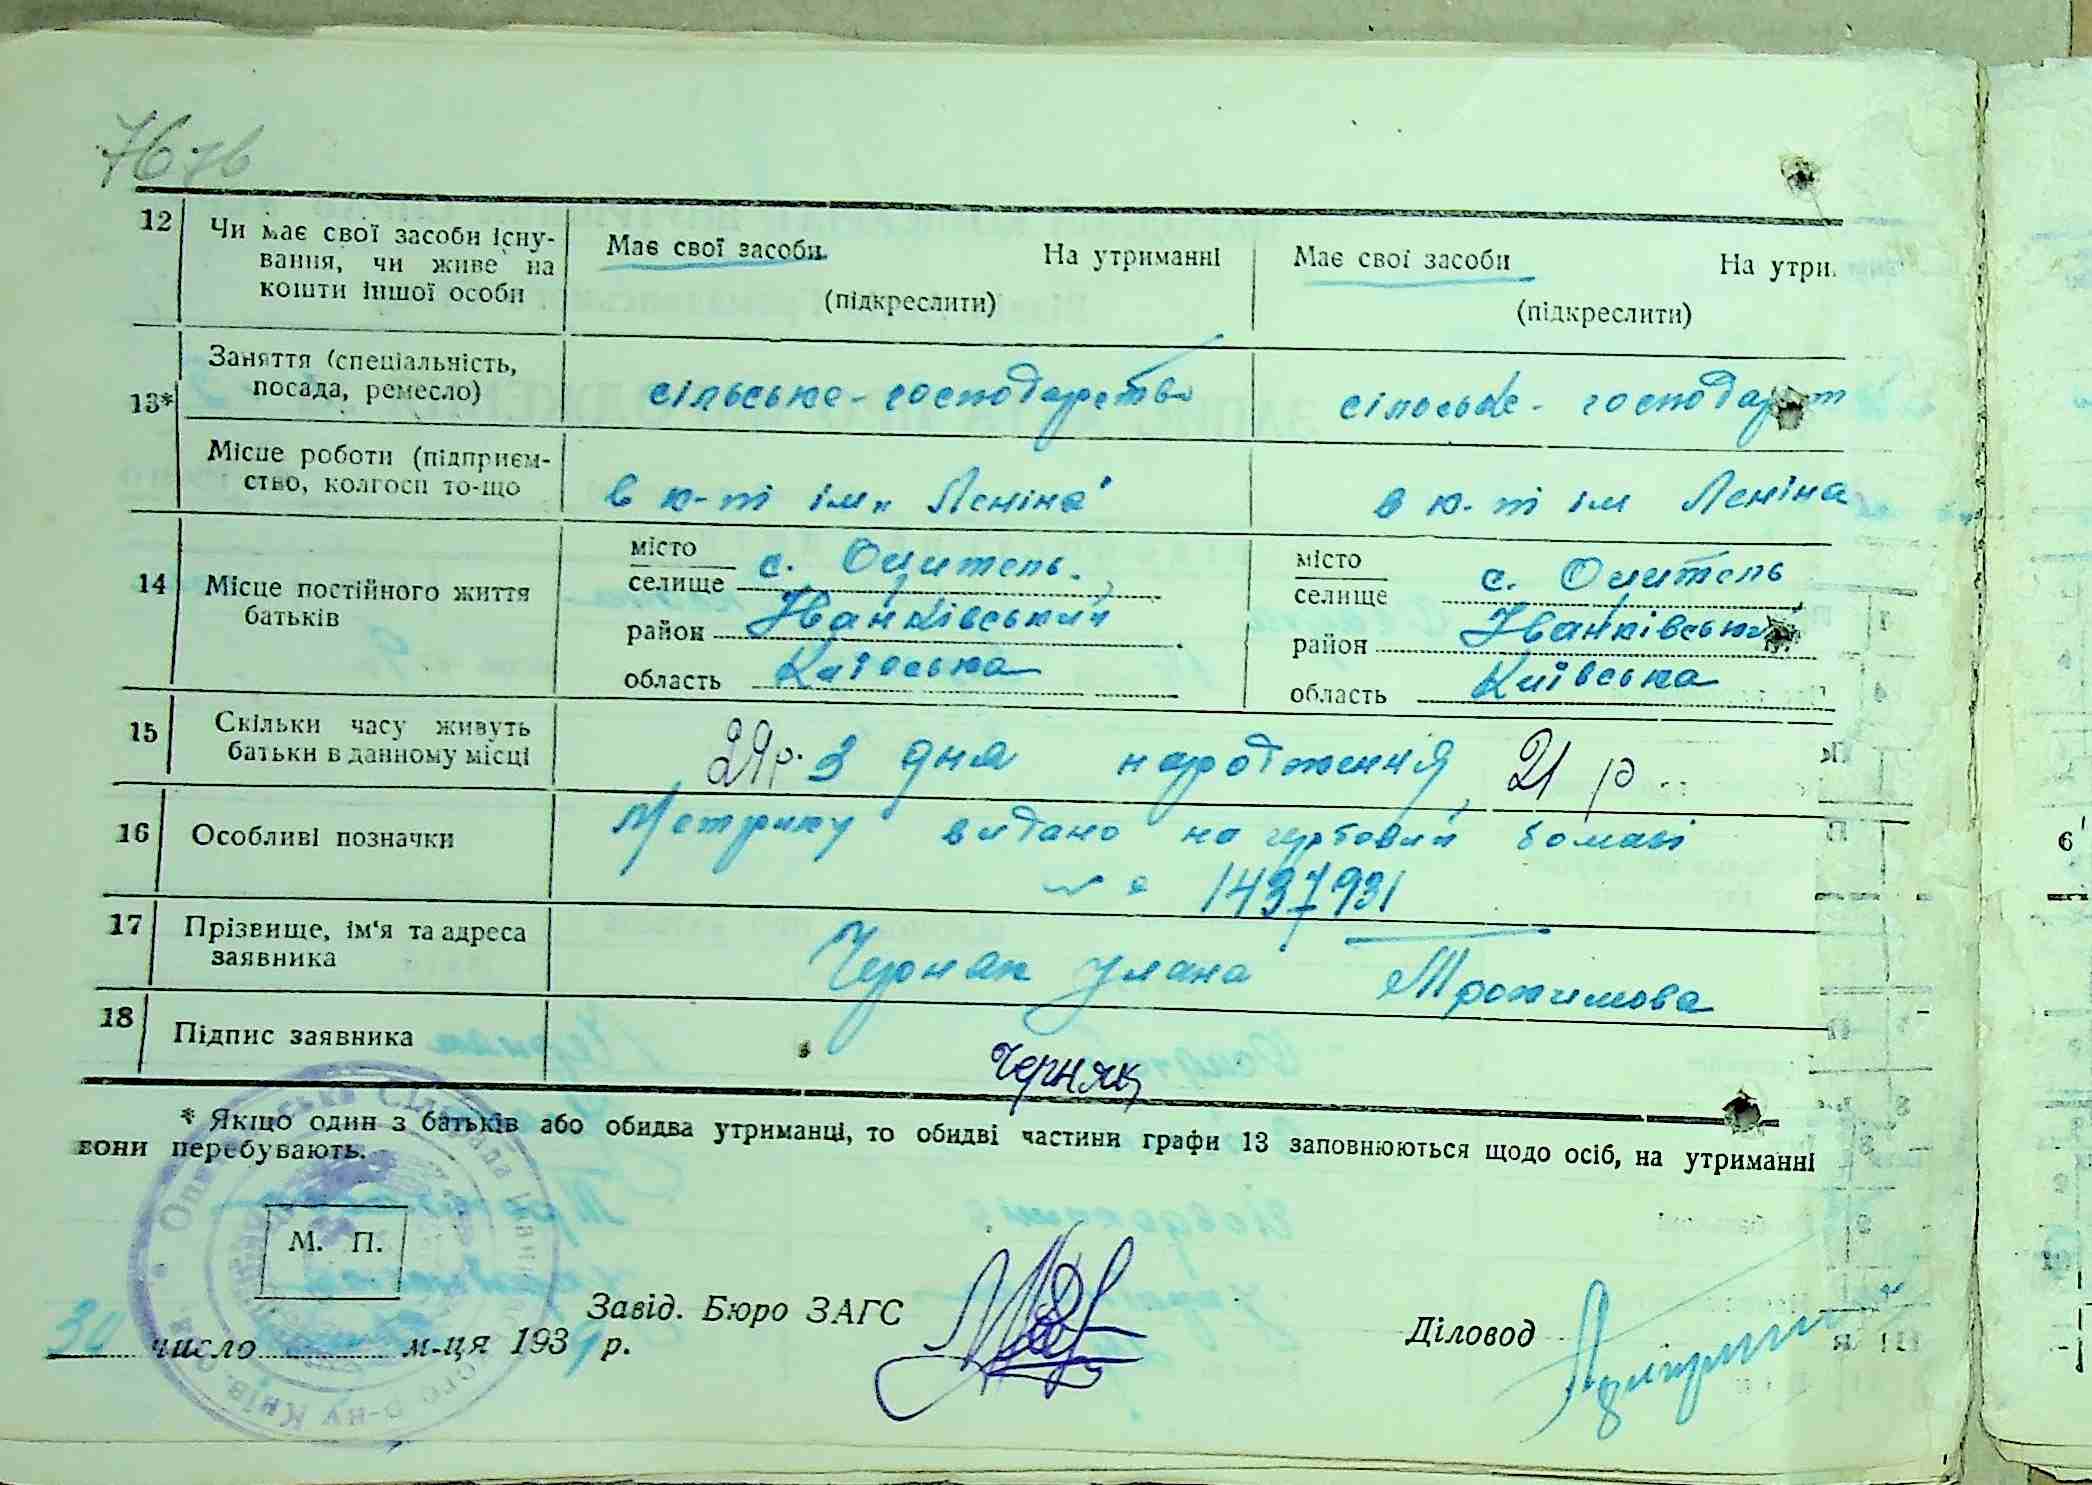 76 зв
12 Чи має свої засоби існу-
вання, чи живе на
кошти іншої особи
Має свої засоби На утриманні
(підкреслити)
Має свої засоби На утри.
(підкреслити)
13* Заняття (спеціальність,
посада, ремесло)
сільське-господарство
сільське-господарст
Місце роботи (підприєм-
ство, колгосп то-що
в к-ті ім „Леніна"
в к-ті ім Леніна
14 Місце постійного життя
батьків
місто
селище с. Опитель
район Іванківський
область Київська
місто
селище с. Опитель
район Іванківський
область Київська
15 Скільки часу живуть
батьки в данному місці
29р. з дня народження, 21 р.
16 Особливі позначки
Метрику видано на гербовий бомазі
1437931
17 Прізвище, ім'я та адреса
заявника
Черняк Уляна Трохимова
18 Підпис заявника
Черняк
* Якщо один з батьків або обидва утриманці, то обидві частини графи 13 заповнюються щодо осіб, на утриманні
вони перебувають.
М. П.
Завід. Бюро ЗАГС
Діловод
30 число м-ця 1939 р.